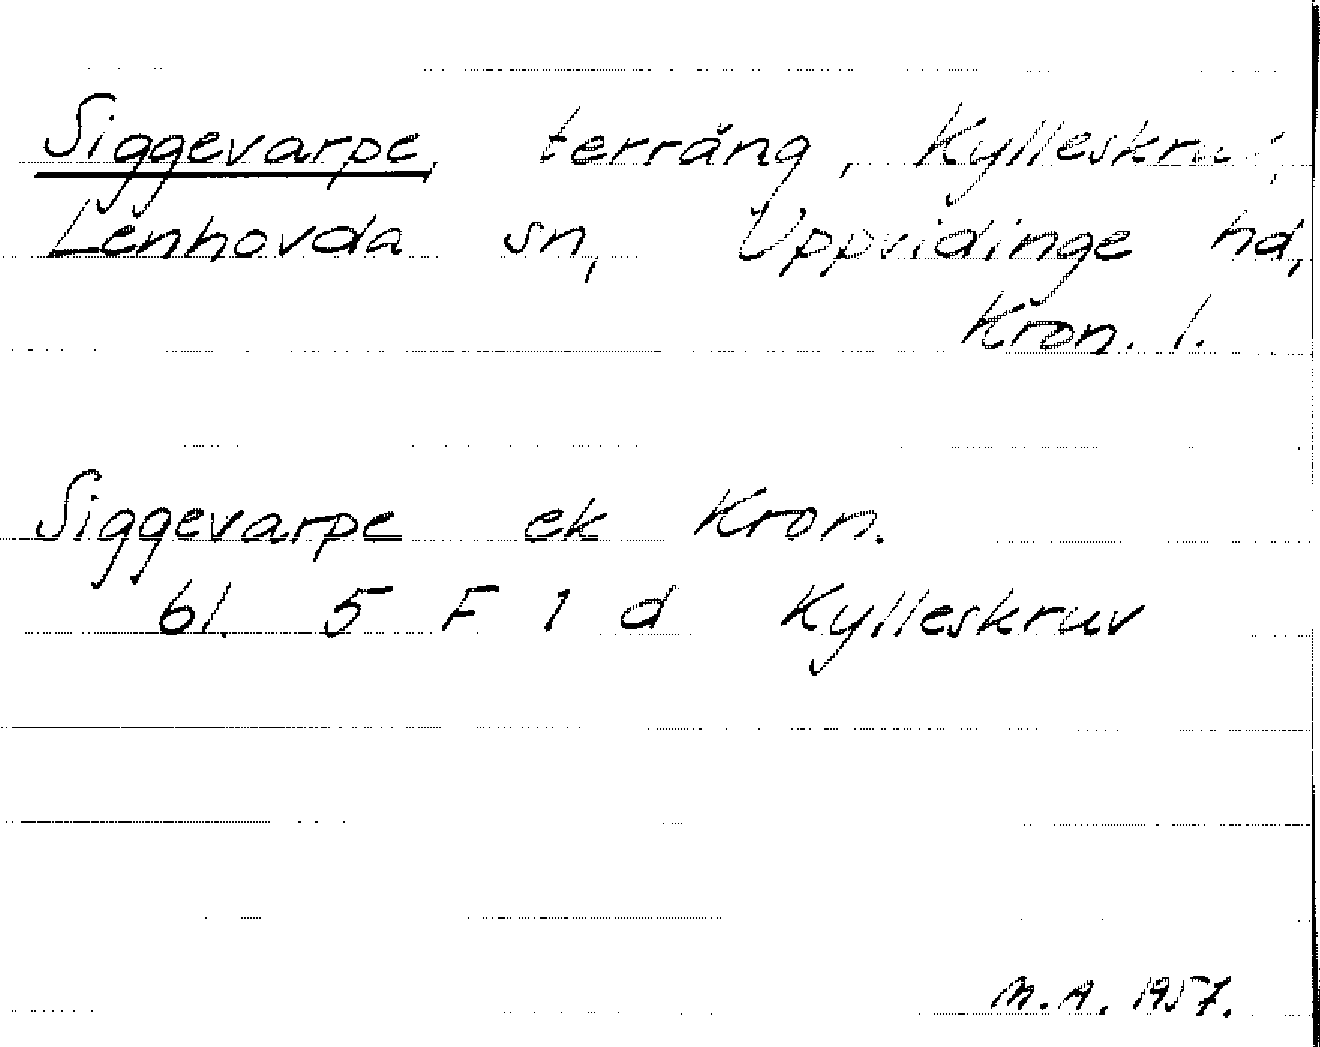 Siggevarpe, terräng, Kylleskruv,
Lenhovda sn, Uppvidinge hd,
Kron. l.
Siggevarpe ek Kron.
bl. 5 F 1 d Kylleskruv
M.A. 1957.